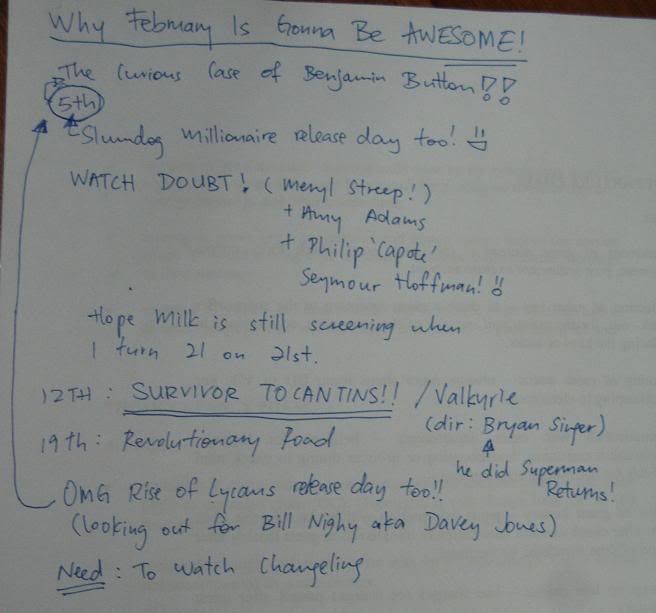 Why February Is Gonna Be AWESOME!
The Curious Case of Benjamin Button!!
5th
Slumdog Millionaire release day too!
WATCH DOUBT! (Meryl Streep!)
+ Amy Adams
+ Philip 'Capote'
Seymour Hoffman!!
Hope Milk is still screening when
I turn 21 on 21st.
12TH: SURVIVOR TOCANTINS!! / Valkyrie
(dir: Bryan Singer)
19th: Revolutionary Road
he did Superman
Returns!
OMG Rise of Lycans release day too!!
(looking out for Bill Nighy aka Davey Jones)
Need: To watch Changeling